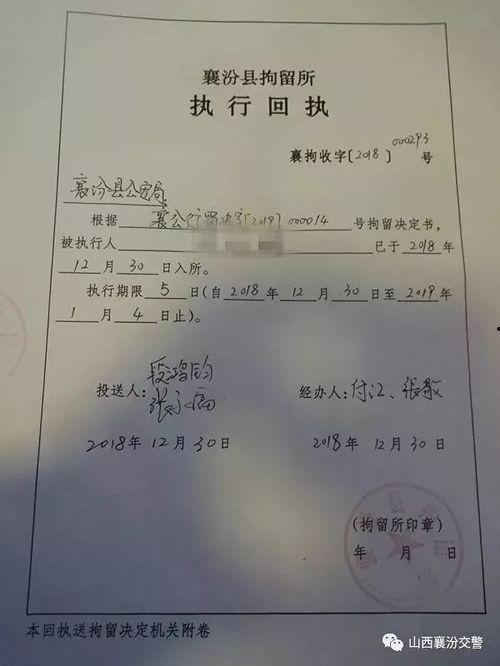 襄汾县拘留所
执行回执
襄拘收字[2018]000293号
襄汾县公安局:
根据襄公行罚决字[2019]000014号拘留决定书,
被执行人 已于2018年
12月30日入所。
执行期限5日(自2018年12月30日至2019年
1月4日止)。
投送人:段鸿钧
经办人:付江、张毅
2018年12月30日
2018年12月30日
(拘留所印章)
年月日
本回执送拘留决定机关附卷
山西襄汾交警